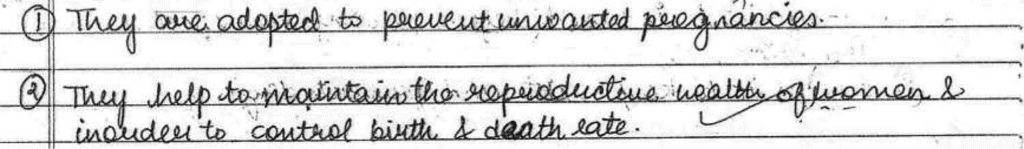 ① They are adopted to prevent unwanted pregnancies.
② They help to maintain the reproductive health of women &
inorder to control birth & death rate.